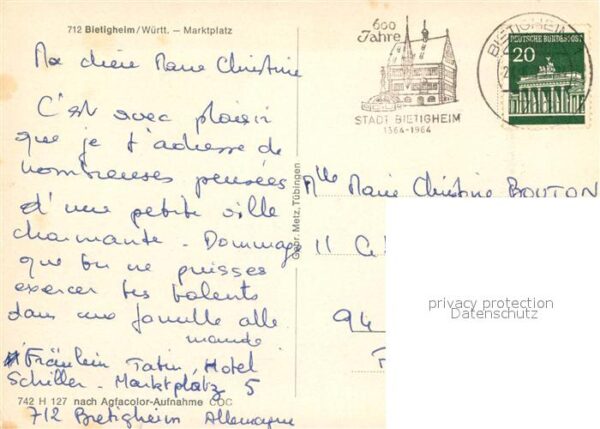 712 Bietigheim/Württ. – Marktplatz
Ma chère Marie Christine
C'est avec plaisir
que je t'adresse de
nombreuses pensées
d'une petite ville
charmante - Dommage
que tu ne puisses
exercer tes talents
dans une famille alle
mande.
Fräulein Tatin, Hotel
Schiller - Marktplatz 5
742 H 127 nach Agfacolor-Aufnahme COC
712 Bietigheim Allemagne
Gebr. Metz, Tübingen
600
Jahre
STADT BIETIGHEIM
1364-1964
BIETIGHEIM
DEUTSCHE BUNDESPOST
20
Mlle Marie Christine BOUTON
11
94
F
privacy protection
Datenschutz